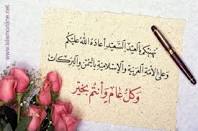 نهنئكم بالعيد السعيد أعاده الله عليكم
وعلى الأمة العربية والإسلامية باليمن والبركات
وكل عام وأنتم بخير